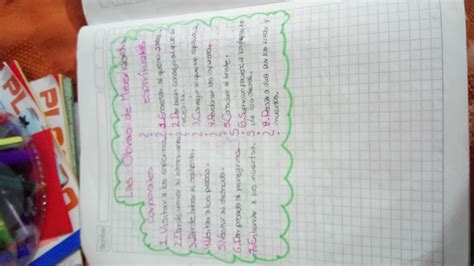 Las Obras de Misericordia
Corporales
1. Visitar a los enfermos
2. Dar de comer al hambriento
3. Dar de beber al sediento.
4. Visitar a los presos.
5. Vestir al desnudo.
6. Dar posada al peregrino.
7. Enterrar a los muertos.
Espirituales
1. Enseñar al que no sabe
2. Dar buen consejo al que lo
necesita.
3. Corregir al que se
4. Perdonar las injurias.
5. Consolar al triste.
6. con paciencia los
de los demás.
Rogar a Dios por los vivos y
muertos.